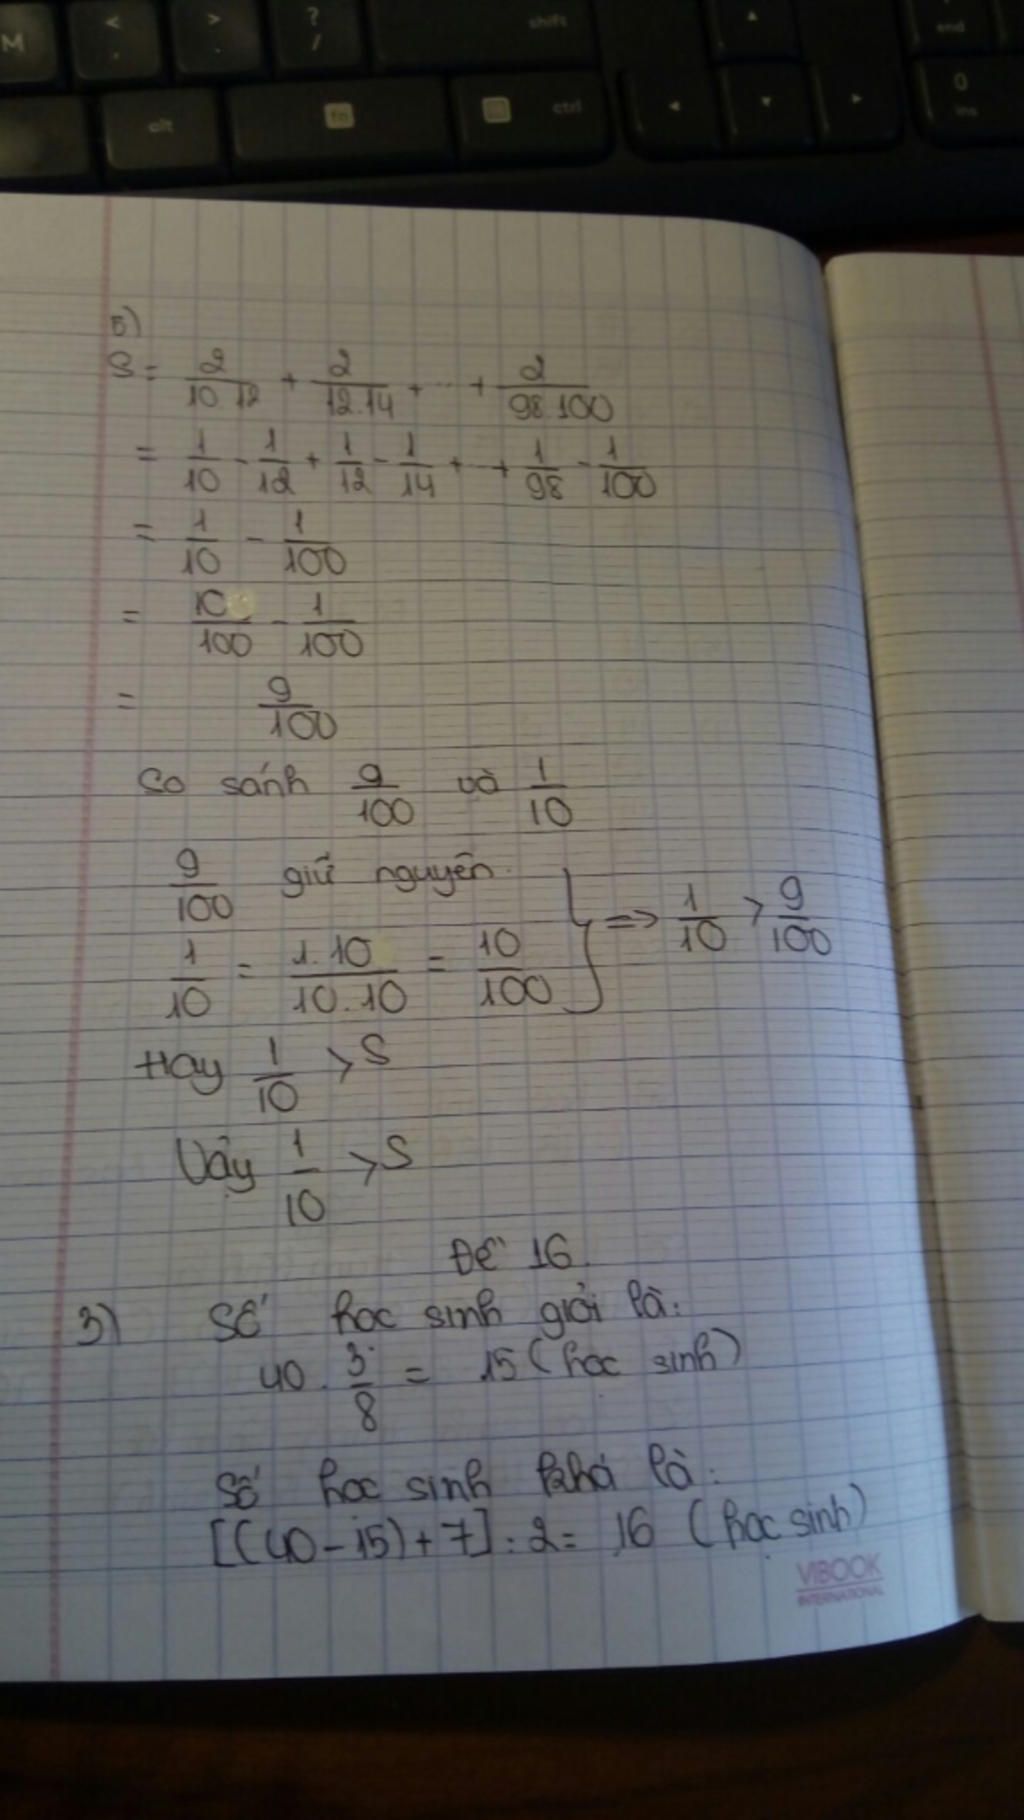 M < . > . ? / shift end
alt fn ctrl 0 ins
5)
S = 2/10.12 + 2/12.14 + ... + 2/98.100
= 1/10 - 1/12 + 1/12 - 1/14 + ... + 1/98 - 1/100
= 1/10 - 1/100
= 10/100 - 1/100
= 9/100
So sánh 9/100 và 1/10
9/100 giữ nguyên.
1/10 = 1.10/10.10 = 10/100 } => 1/10 > 9/100
Hay 1/10 > S
Vậy 1/10 > S
Đề 16
3) Số học sinh giỏi là:
40 . 3/8 = 15 (học sinh)
Số học sinh khá là:
[(40 - 15) + 7] : 2 = 16 (học sinh)
VIBOOK
INTERNATIONAL